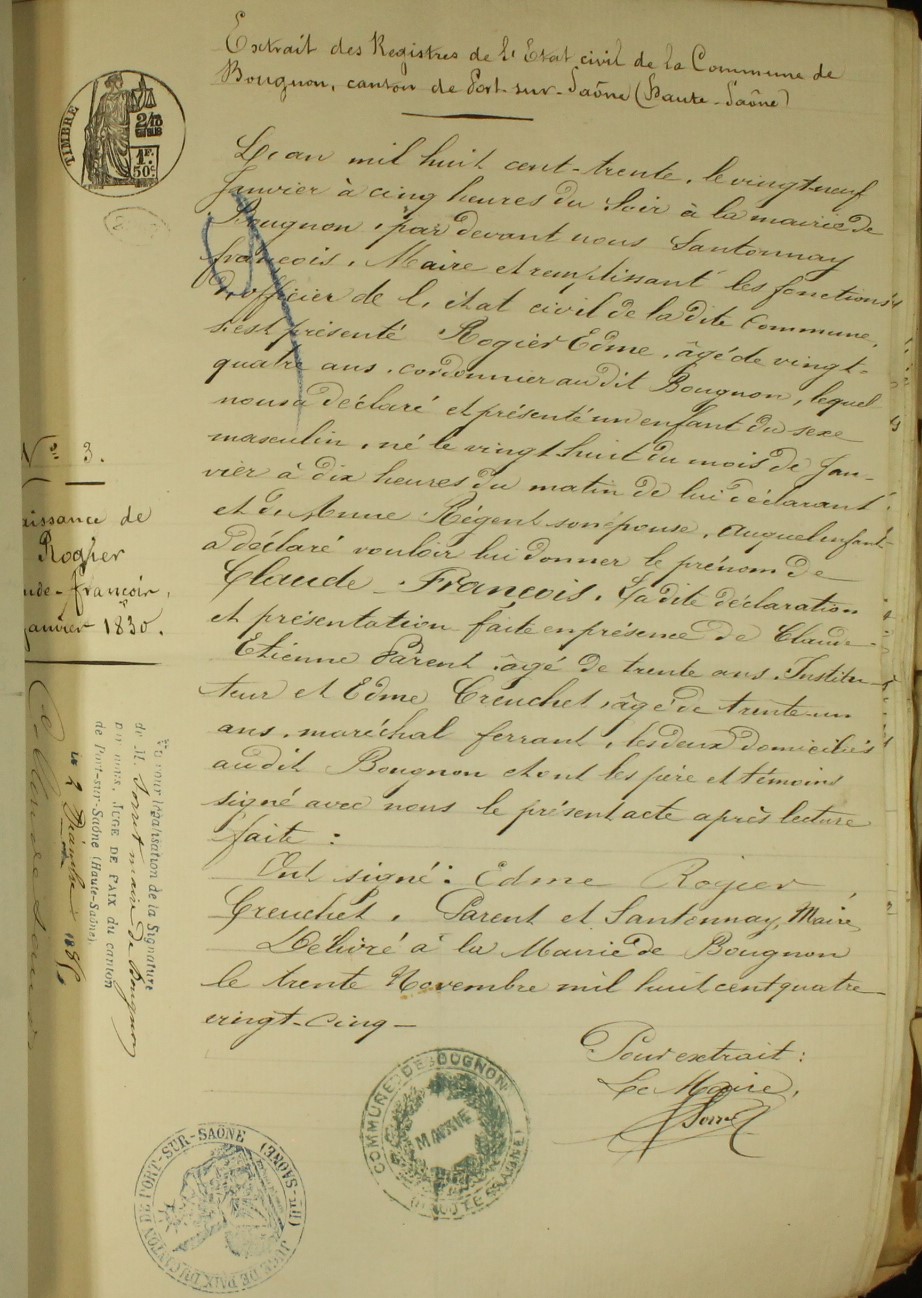 Extrait des Registres de l'Etat civil de la Commune de
Bougnon, canton de Port-sur-Saône (Haute-Saône)
TIMBRE
2/10
EN SUS
1F.
50c
L'an mil huit cent-trente, le vingt-neuf
Janvier à cinq heures du soir à la mairie de
Bougnon, par devant nous Santonnay
françois, Maire et remplissant les fonctions
d'officier de l'état civil de la dite Commune,
s'est présenté Rogier Edme, âgé de vingt-
quatre ans, cordonnier au dit Bougnon, lequel
nous a déclaré et présenté un enfant du sexe
masculin, né le vingt huit du mois de Jan-
vier à dix heures du matin de lui déclarant
et de Anne Régent son épouse, auquel enfant
a déclaré vouloir lui donner le prénom de
Claude-François. La dite déclaration
et présentation faite en présence de Claude-
Etienne Parent, âgé de trente ans, Institu-
teur et Edme Creuchet, âgé de trente-un
ans, maréchal ferrant, les deux domiciliés
audit Bougnon et ont les père et témoins
signé avec nous le présent acte après lecture
faite :
Ont signé : Edme Rogier,
Creuchet, Parent et Santonnay, Maire
Délivré à la Mairie de Bougnon
le trente Novembre mil huit cent quatre-
vingt-cinq-
Pour extrait :
Le Maire,
N° 3.
aissance de
Rogier
ude-françois,
janvier 1830.
Vu pour légalisation de la Signature
de M. maire de Bougnon
par nous, JUGE DE PAIX du canton
de Port-sur-Saône (Haute-Saône).
le 2 Décembre 1885
COMMUNE DE BOUGNON
MAIRIE
(HAUTE SAONE)
JUGE DE PAIX DU CANTON DE PORT-SUR-SAONE (HTE-SAONE)